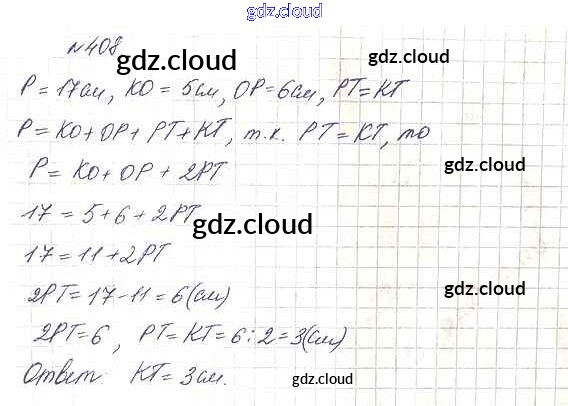 gdz.cloud
№408
gdz.cloud
gdz.cloud
P = 17см, KO = 5см, OP = 6см, PT = KT
gdz.cloud
P = KO + OP + PT + KT, т.к. PT = KT, то
gdz.cloud
P = KO + OP + 2PT
17 = 5 + 6 + 2PT
gdz.cloud
17 = 11 + 2PT
2PT = 17 - 11 = 6 (см)
gdz.cloud
2PT = 6, PT = KT = 6 : 2 = 3 (см)
Ответ KT = 3 см.
gdz.cloud